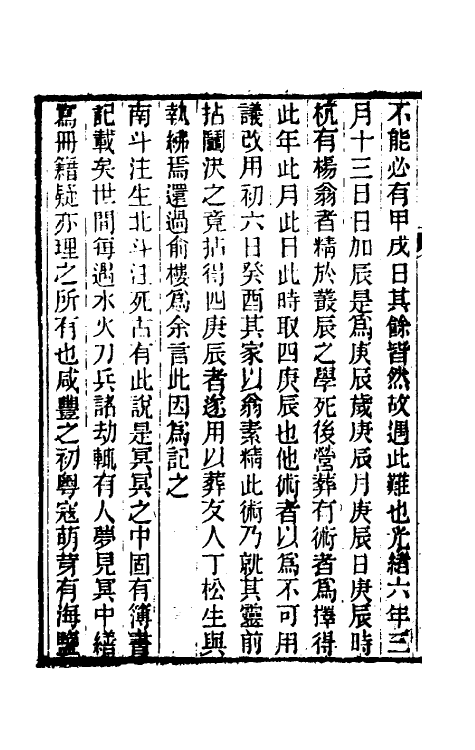 不能必有甲戌日其餘皆然故遇此難也光緒六年三
月十三日日加辰是爲庚辰歲庚辰月庚辰日庚辰時
杭有楊翁者精於叢辰之學死後營葬有術者爲擇得
此年此月此日此時取四庚辰也他術者以爲不可用
議改用初六日癸酉其家以翁素精此術乃就其靈前
拈鬮決之竟拈得四庚辰者遂用以葬友人丁松生與
執紼焉還過俞樓爲余言此因爲記之
南斗注生北斗注死古有此說是冥冥之中固有簿書
記載矣世間每遇水火刀兵諸劫輒有人夢見冥中繕
寫冊籍疑亦理之所有也咸豐之初粵寇萌芽有海鹽